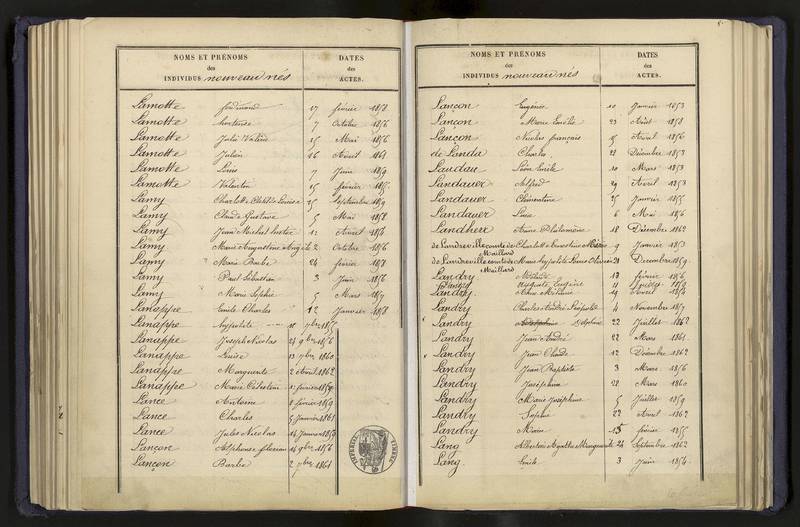 NOMS ET PRÉNOMS
des
INDIVIDUS nouveau nés
DATES
des
ACTES.
Lamotte ferdinand 17 février 1858
Lamotte hortense 7 Octobre 1856
Lamotte Julie Valérie 25 Mai 1856
Lamotte Julien 16 Août 1861
Lamotte Louis 7 Juin 1859
Lamotte Valentin 25 février 1855
Lamy Charlotte Clotilde Louise 25 Septembre 1859
Lamy Claude Gustave 5 Mai 1858
Lamy Jean Michel hector 12 Avril 1856
Lamy Marie Augustine 2 Octobre 1856
Lamy Marie Barbe 24 février 1858
Lamy Paul Sébastien 3 Juin 1856
Lamy Marie Sophie 5 Mars 1857
Lanappe Emile Charles 12 Janvier 1858
Lanappe hyppolite
Lanappe Joseph Nicolas 24 9bre 1856
Lanappe Louise 13 7bre 1860
Lanappe Marguerite 2 Avril 1862
Lanappe Marie Célestine février
Lance Antoine 8 février 1859
Lance Charles 5 Janvier 1861
Lance Jules Nicolas 14 Janvier 1853
Lançon Alphonse florian 14 9bre 1856
Lançon Barbe 2 7bre 1861
NOMS ET PRÉNOMS
des
INDIVIDUS nouveau nés
DATES
des
ACTES.
Lançon Eugénie 10 Janvier 1853
Lançon Marie Emélie 23 Août 1858
Lançon Nicolas françois 15 Avril 1856
de Landa Charles 21 Décembre 1853
Landau Léon Emile 10 Mars 1853
Landauer Alfred 29 Avril 1853
Landauer Clémentine 25 Janvier 1855
Landauer Lucie 6 Mai 1856
Landherr Anne Philomène 18 Décembre 1862
de Landreville comte de Charlotte Ernestine 9 Janvier 1853
Maillard
de Landreville comte de Marie hyppolite Louis Olivier 21 Décembre 1859
Maillard
Landry 17 février 1856
Landry Auguste Eugène 11 Juillet
Landry 19 Avril 1854
Landry Charles André Léopold 4 Novembre 1857
Landry Delphine 22 Juillet 1862
Landry Jean André 22 Mars 1861
Landry Jean Claude 12 Décembre 1862
Landry Jean Baptiste 3 Mars 1856
Landry Joséphine 28 Mars 1860
Landry Marie Joséphine 5 Juillet 1859
Landry Sophie 22 Avril 1862
Landry Marie 15 février 1855
Lang Albertine Agathe Marguerite 24 Septembre 1862
Lang Emile 3 Juin 1854